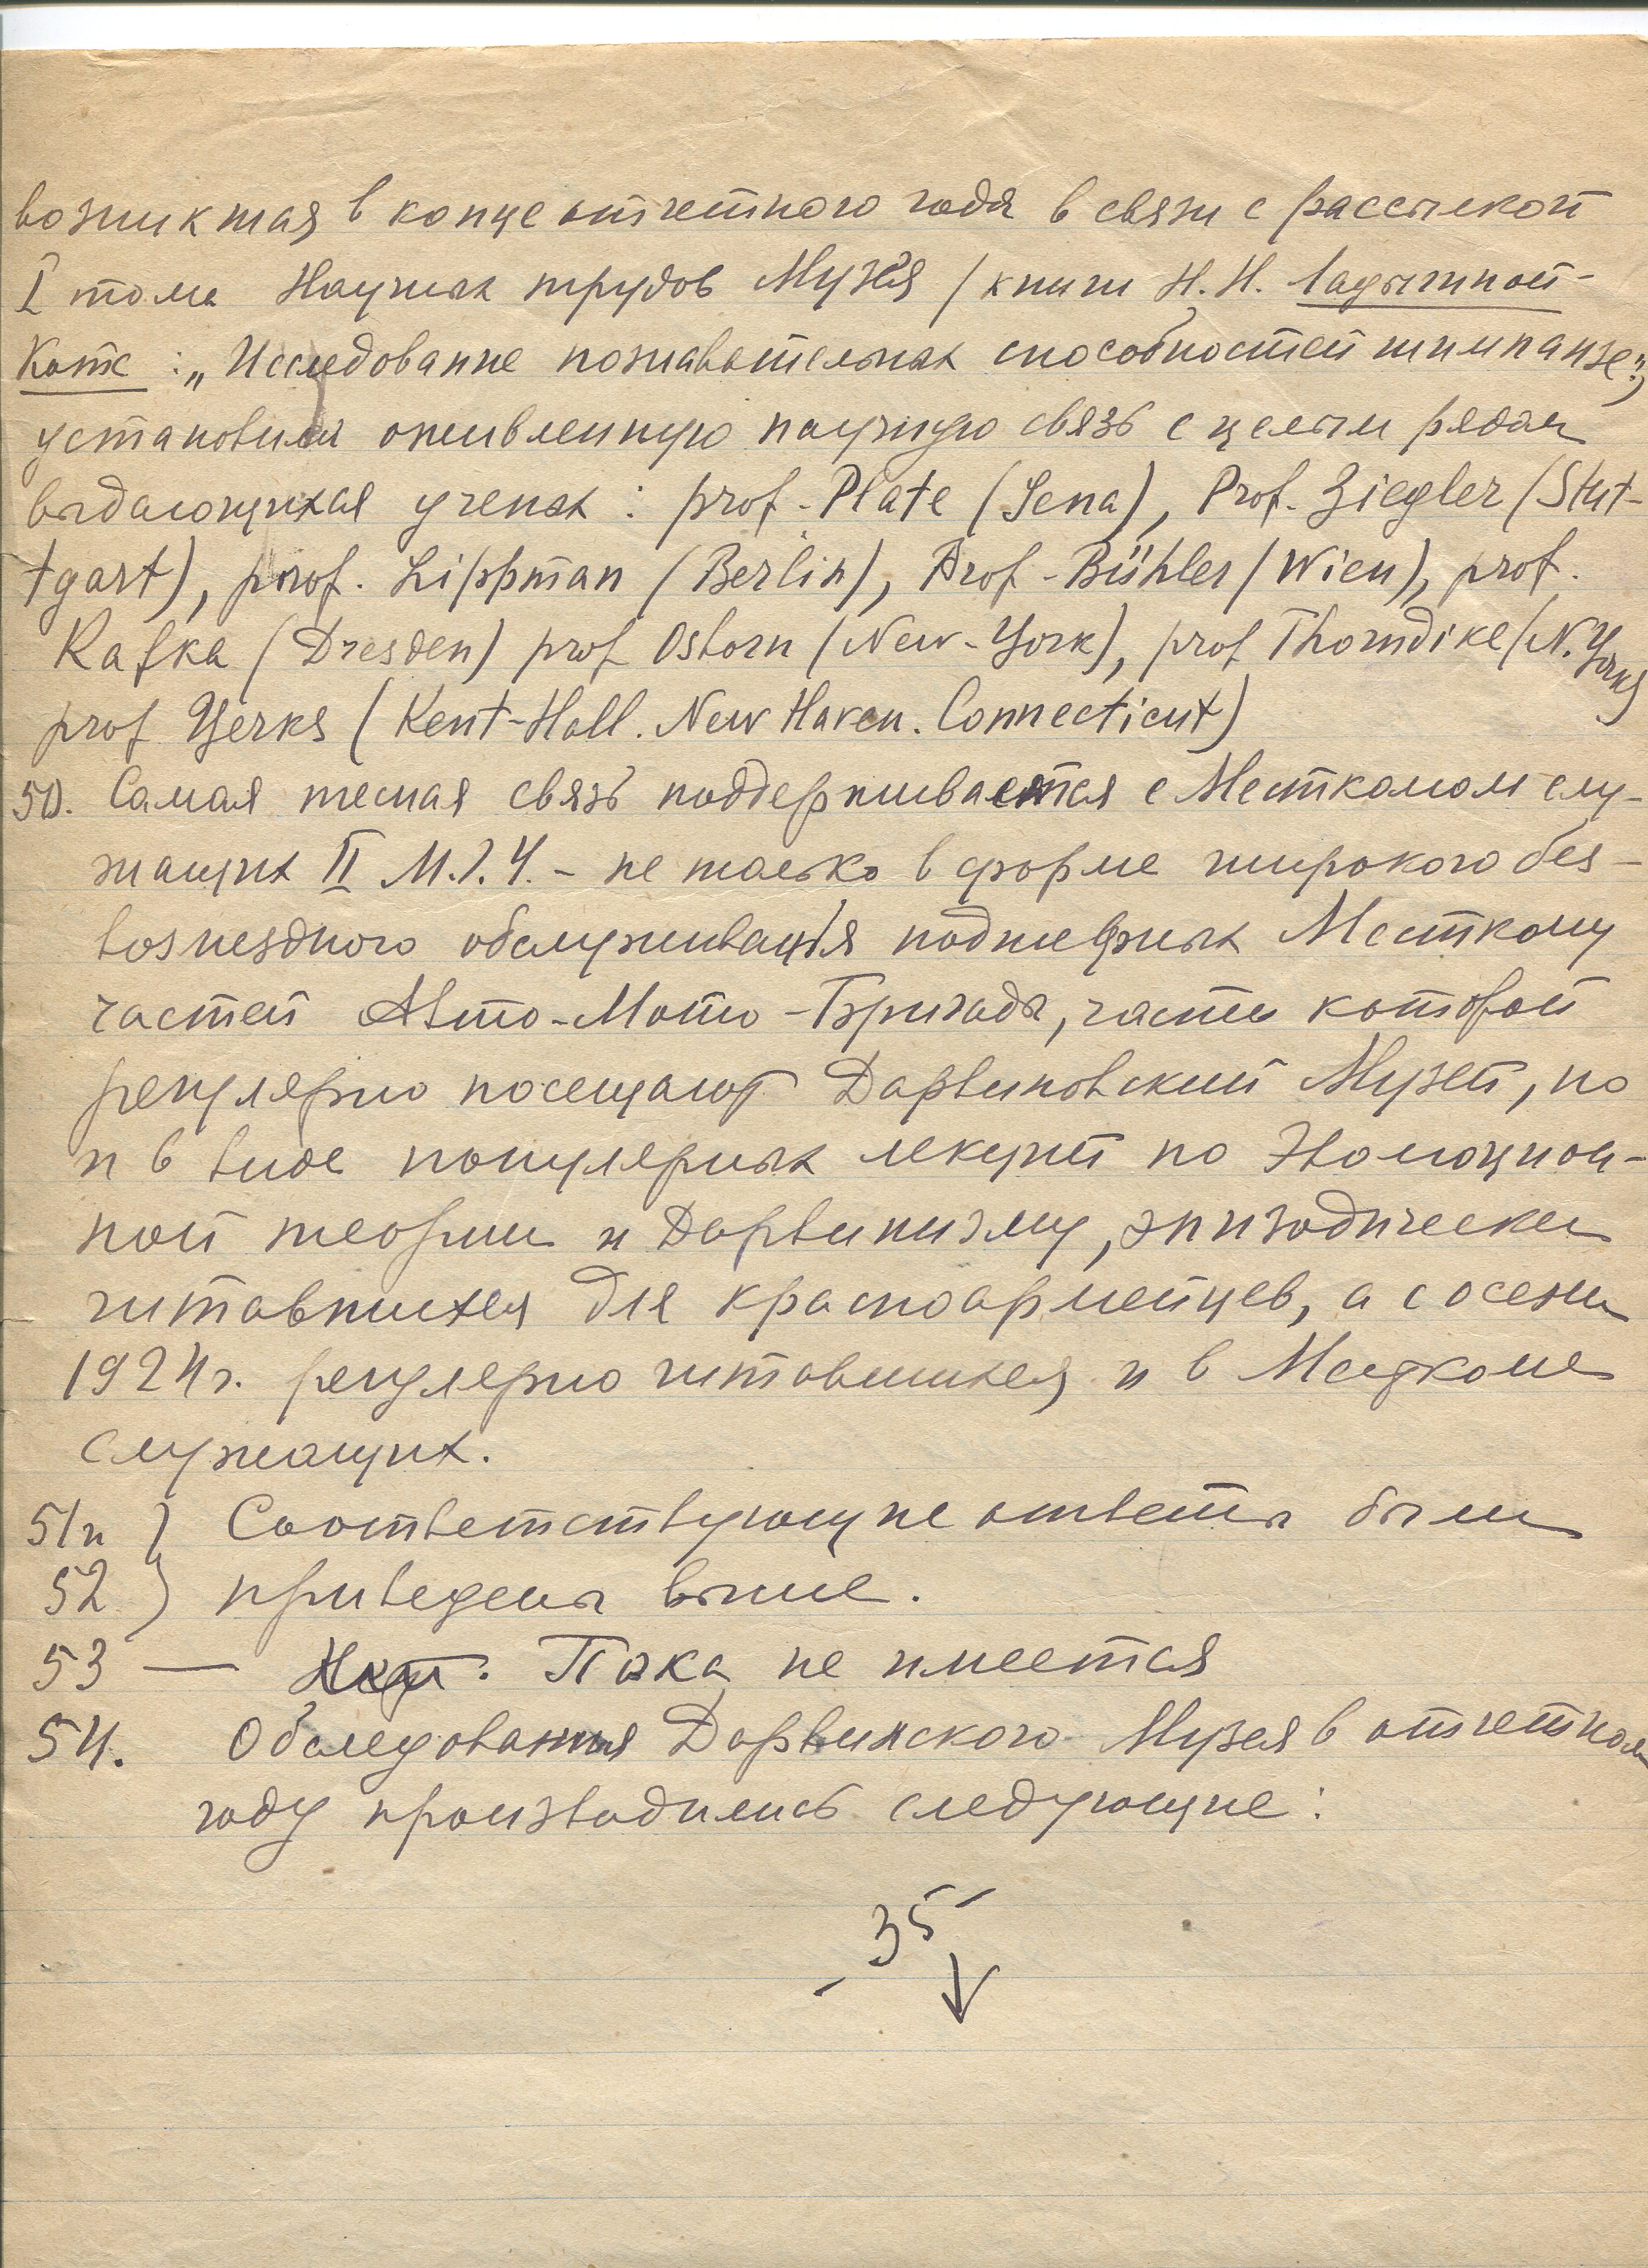 возникшая в конце отчетного года в связи с рассылкой
I тома Научных трудов Музея (книги Н.Н. Ладыгиной-
Котс: „Исследование познавательных способностей шимпанзе",
установила оживленную научную связь с целым рядом
выдающихся ученых: prof. Plate (Jena), Prof. Ziegler (Stut-
tgart), prof. Lippman (Berlin), Prof. Bühler (Wien), prof.
Kafka (Dresden) prof Osborn (New-York), prof Thorndike (N. York)
prof Yerks (Kent-Hall. New Haven. Connecticut)
50. Самая тесная связь поддерживается с Месткомом слу-
жащих II М.Г.У. - не только в форме широкого без-
возмездного обслуживания подшефных Месткому
частей Авто-Мото-Бригады, части которой
регулярно посещают Дарвиновский Музей, но
и в виде популярных лекций по Эволюцион-
ной теории и Дарвинизму, эпизодически
читавшихся для красноармейцев, а с осени
1924 г. регулярно читавшихся и в Месткоме
служащих.
51 и } Соответствующие ответы были
52 } приведены выше.
53 — Нет. Пока не имеется
54. Обследования Дарвинского Музея в отчетном
году производились следующие:
- 35 -
↓